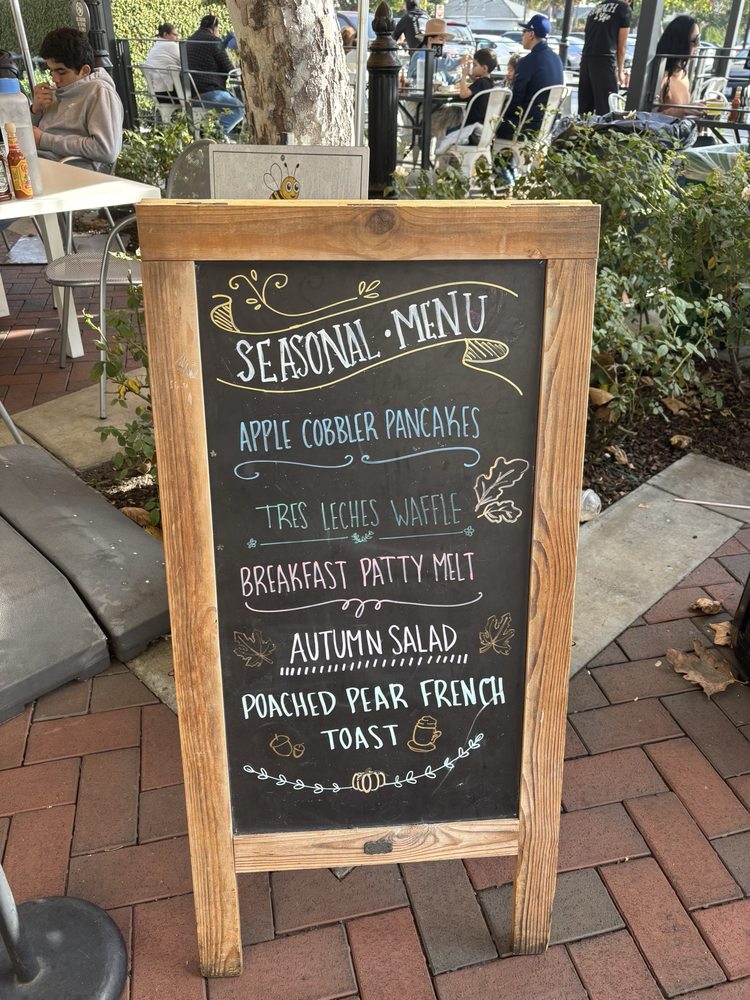 SEASONAL • MENU
APPLE COBBLER PANCAKES
TRES LECHES WAFFLE
BREAKFAST PATTY MELT
AUTUMN SALAD
POACHED PEAR FRENCH
TOAST